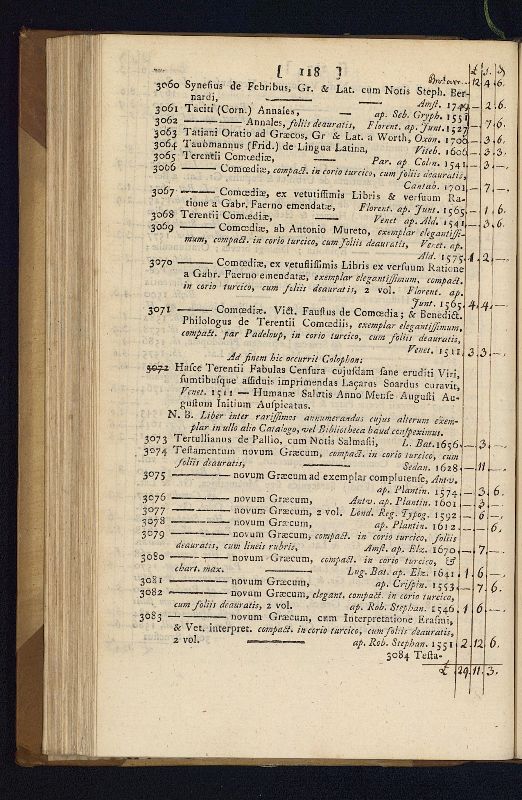 [ 118 ] £ s. d
Brot over - 12. 4. 6.
3060 Synesius de Febribus, Gr. & Lat. cum Notis Steph. Ber-
nardi, Amst. 1749 - 2. 6.
3061 Taciti (Corn.) Annales, — ap. Seb. Gryph. 1551
3062 ——— Annales, foliis deauratis, Florent. ap. Junt. 1527 - 7. 6.
3063 Tatiani Oratio ad Græcos, Gr & Lat. a Worth, Oxon. 1700 - 3. 6.
3064 Taubmannus (Frid.) de Lingua Latina, Viteb. 1606 - 3. 3.
3065 Terentii Comœdiæ, — Par. ap. Colin. 1541 - 3. -
3066 ——— Comœdiæ, compact. in corio turcico, cum foliis deauratis,
Cantab. 1701 - 7. -
3067 ——— Comœdiæ, ex vetutissimis Libris & versuum Ra-
tione a Gabr. Faerno emendatæ, Florent. ap. Junt. 1565 - 1. 6.
3068 Terentii Comœdiæ, — Venet ap. Ald. 1541 - 3. 6.
3069 ——— Comœdiæ, ab Antonio Mureto, exemplar elegantissi-
mum, compact. in corio turcico, cum foliis deauratis, Venet. ap.
Ald. 1575 1. 2. -
3070 ——— Comœdiæ, ex vetustissimis Libris ex versuum Ratione
a Gabr. Faerno emendatæ, exemplar elegantissimum, compact.
in corio turcico, cum foliis deauratis, 2 vol. Florent. ap.
Junt. 1565 4. 4. -
3071 ——— Comœdiæ. Vict. Faustus de Comœdia; & Benedict.
Philologus de Terentii Comœdiis, exemplar elegantissimum,
compact. par Padeloup, in corio turcico, cum foliis deauratis,
Venet. 1511 3. 3. -
Ad finem hic occurrit Colophon:
3072 Hasce Terentii Fabulas Censura cujusdam sane eruditi Viri,
sumtibusque assiduis imprimendas Laçarus Soardus curavit,
Venet. 1511 — Humanæ Salutis Anno Mense Augusti Au-
gustom Initium Auspicatus.
N. B. Liber inter rarissimos annumerandus cujus alterum exem-
plar in ullo alio Catalogo, vel Bibliotheca haud conspeximus.
3073 Tertullianus de Pallio, cum Notis Salmasii, L. Bat. 1656 - 3. -
3074 Testamentum novum Græcum, compact. in corio turcico, cum
foliis deauratis, ——— Sedan. 1628 - 11. -
3075 ——— novum Græcum ad exemplar complutense, Antv.
ap. Plantin. 1574 - 3. 6.
3076 ——— novum Græcum, Antv. ap. Plantin. 1601 - 3. -
3077 ——— novum Græcum, 2 vol. Lond. Reg. Typog. 1592 - 6. -
3078 ——— novum Græcum, ap. Plantin. 1612 - - 6.
3079 ——— novum Græcum, compact. in corio turcico, foliis
deauratis, cum lineis rubris, Amst. ap. Elz. 1670 - 7. -
3080 ——— novum Græcum, compact. in corio turcico, &
chart. max. ——— Lug. Bat. ap. Elz. 1641 1. 6. -
3081 ——— novum Græcum, ap. Crispin. 1553 - 7. 6.
3082 ——— novum Græcum, elegant. compact. in corio turcico,
cum foliis deauratis, 2 vol. ap. Rob. Stephan. 1546 1. 6. -
3083 ——— novum Græcum, cum Interpretatione Erasmi,
& Vet. interpret. compact. in corio turcico, cum foliis deauratis,
2 vol. ——— ap. Rob. Stephan. 1551 2. 12. 6
3084 Testa-
£ 29. 11. 3.